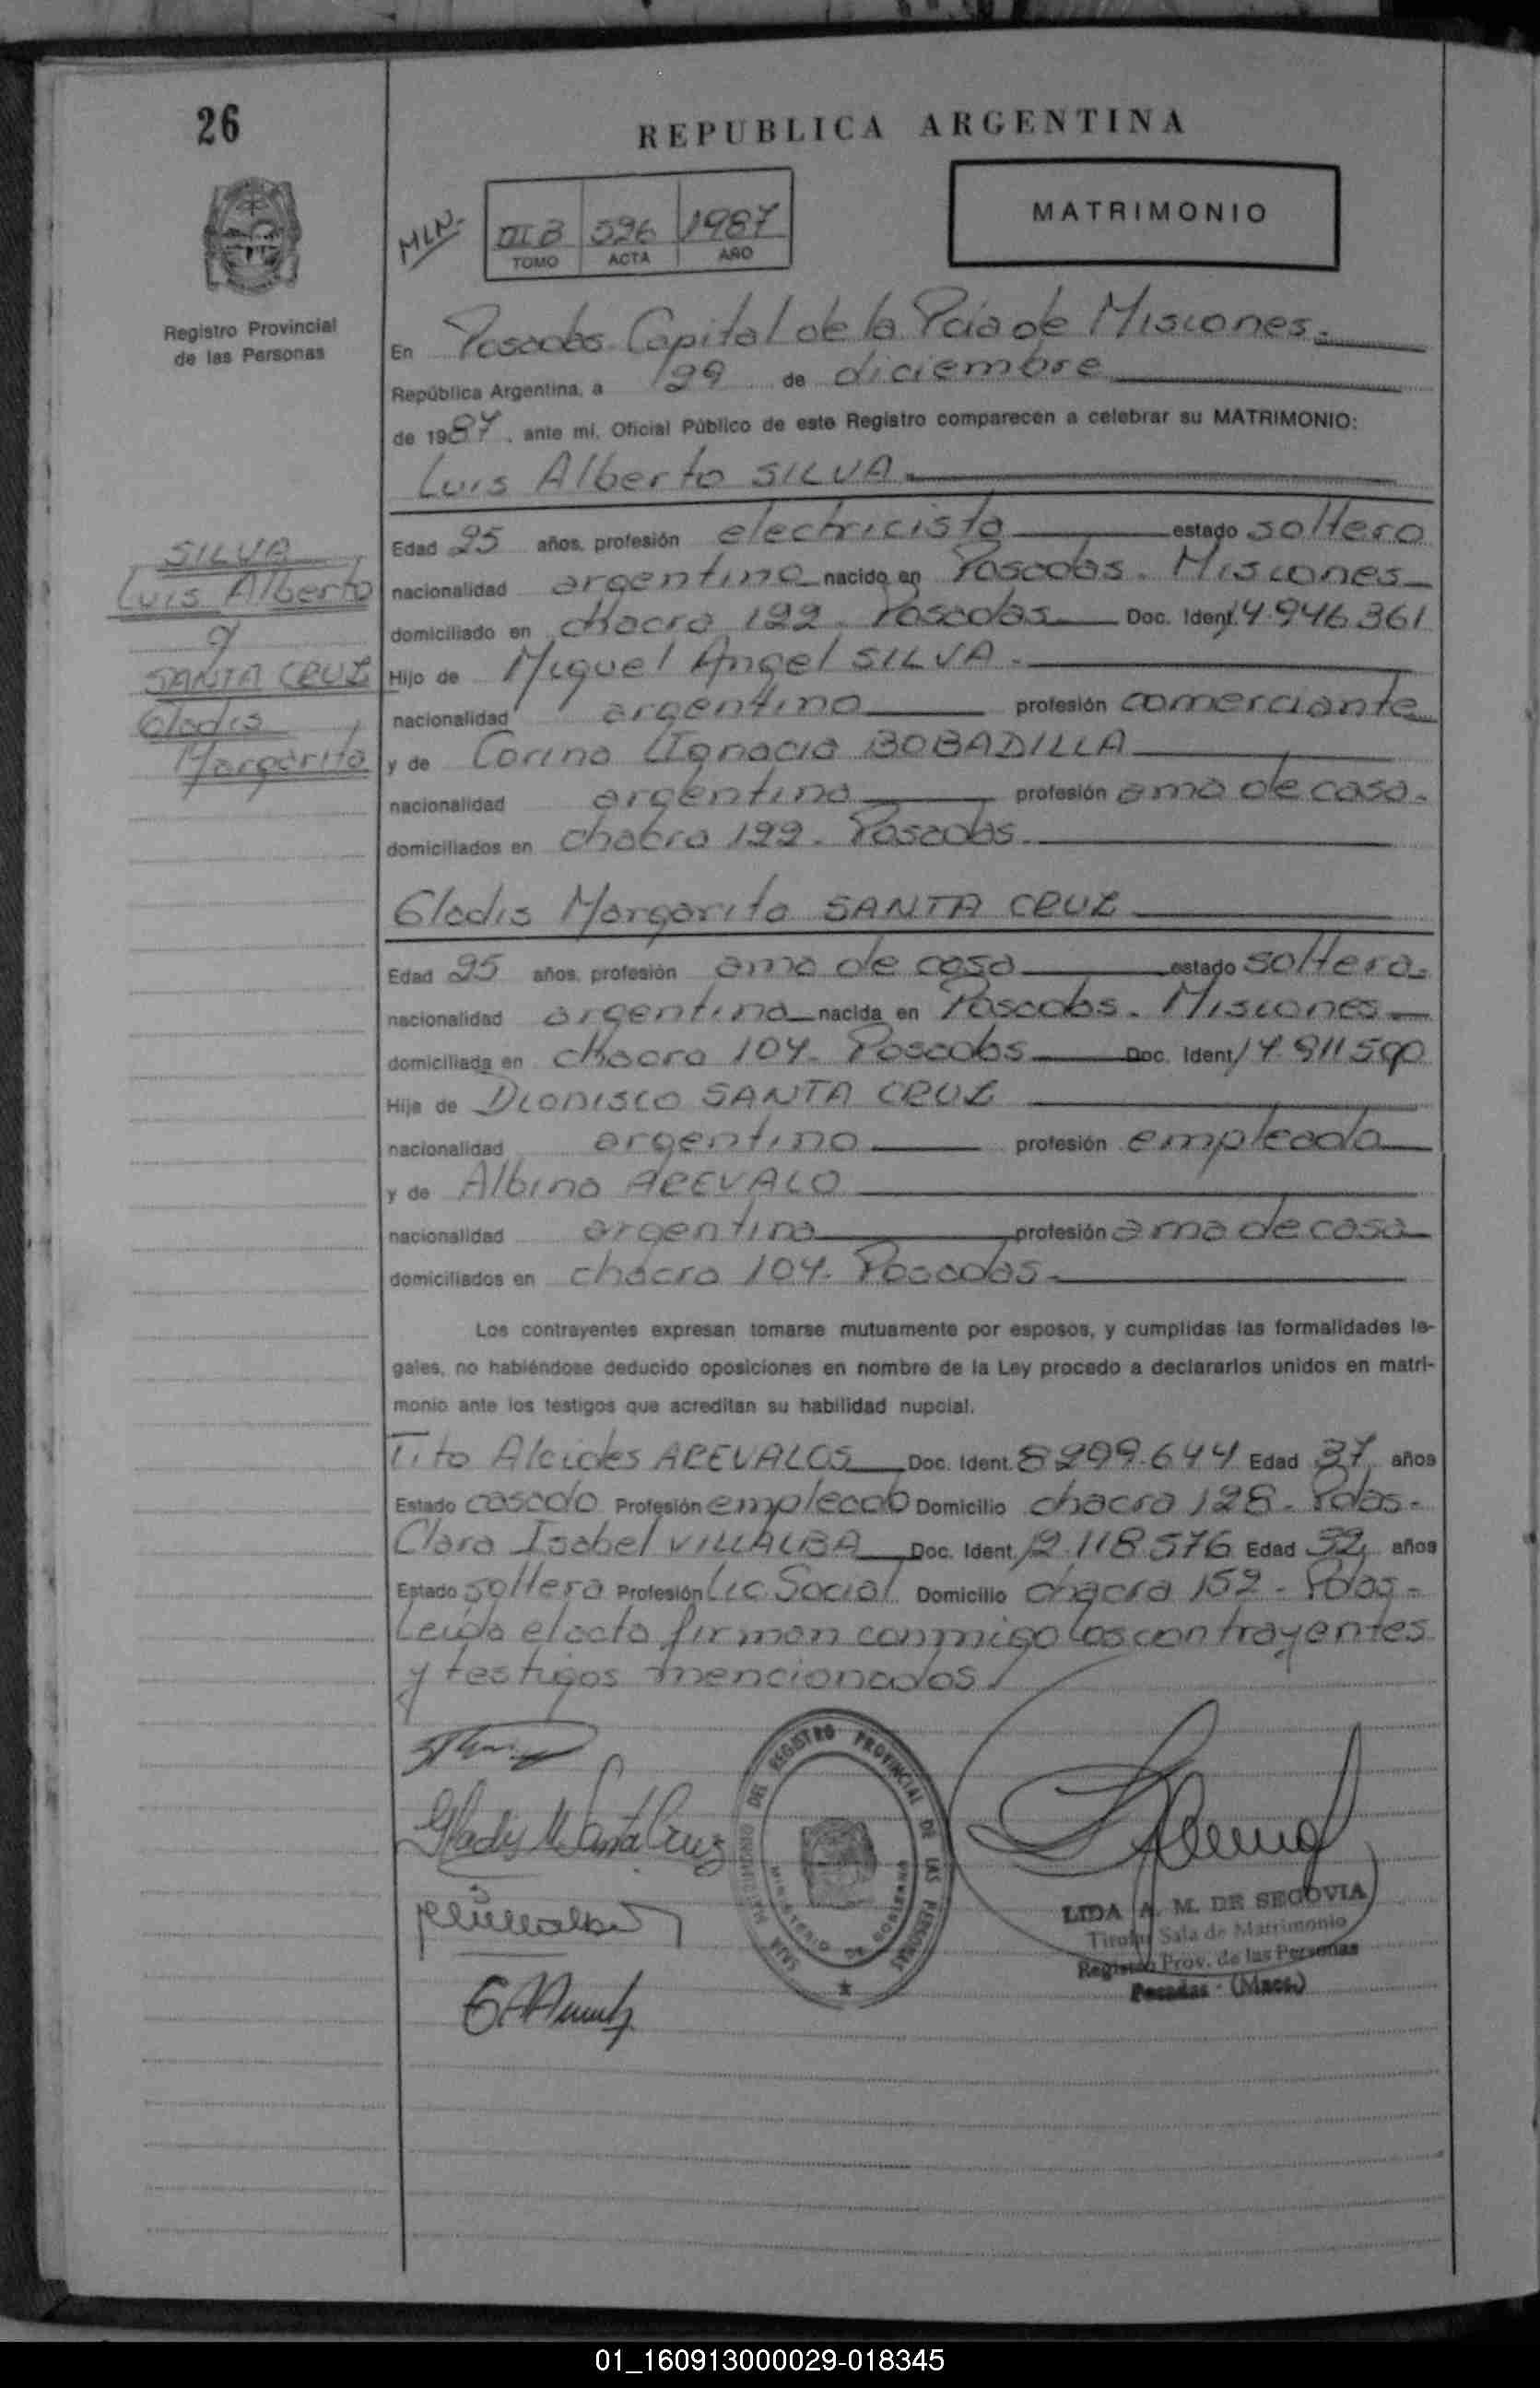 26
REPUBLICA ARGENTINA
MATRIMONIO
MLN.
III B 596 1987
TOMO ACTA AÑO
Registro Provincial
de las Personas
En Posadas Capital de la Pcia de Misiones.
República Argentina, a 29 de diciembre
de 1987, ante mi, Oficial Público de este Registro comparecen a celebrar su MATRIMONIO:
Luis Alberto SILVA
SILVA
Luis Alberto
y
SANTA CRUZ
Gladis
Margarita
Edad 25 años, profesión electricista estado soltero
nacionalidad argentino nacido en Posadas. Misiones
domiciliado en chacra 122. Posadas Doc. Ident. 14.946.361
Hijo de Miguel Angel SILVA.
nacionalidad argentino profesión comerciante
y de Corina Ignacia BOBADILLA
nacionalidad argentina profesión ama de casa.
domiciliados en chacra 122. Posadas.
Gladis Margarita SANTA CRUZ
Edad 25 años, profesión ama de casa estado soltera.
nacionalidad argentina nacida en Posadas. Misiones
domiciliada en chacra 104. Posadas Doc. Ident. 14.911.590
Hija de Dionisco SANTA CRUZ
nacionalidad argentino profesión empleado
y de Albina AREVALO
nacionalidad argentina profesión ama de casa
domiciliados en chacra 104. Posadas.
Los contrayentes expresan tomarse mutuamente por esposos, y cumplidas las formalidades le-
gales, no habiéndose deducido oposiciones en nombre de la Ley procedo a declararlos unidos en matri-
monio ante los testigos que acreditan su habilidad nupcial.
Tito Alcides AREVALOS Doc. Ident. 8.299.644 Edad 37 años
Estado casado Profesión empleado Domicilio chacra 128. Pdas.
Clara Isabel VILLALBA Doc. Ident. 12.118.576 Edad 32 años
Estado soltera Profesión Lic. Social Domicilio chacra 152. Pdas.
Leida el acta firman conmigo los contrayentes
y testigos mencionados
Gladis M. Santa Cruz
REGISTRO PROVINCIAL DE LAS PERSONAS
MINISTERIO DE GOBIERNO
LIDA A. M. DE SEGOVIA
Titular Sala de Matrimonio
Registro Prov. de las Personas
Posadas - (Mnes.)
01_160913000029-018345